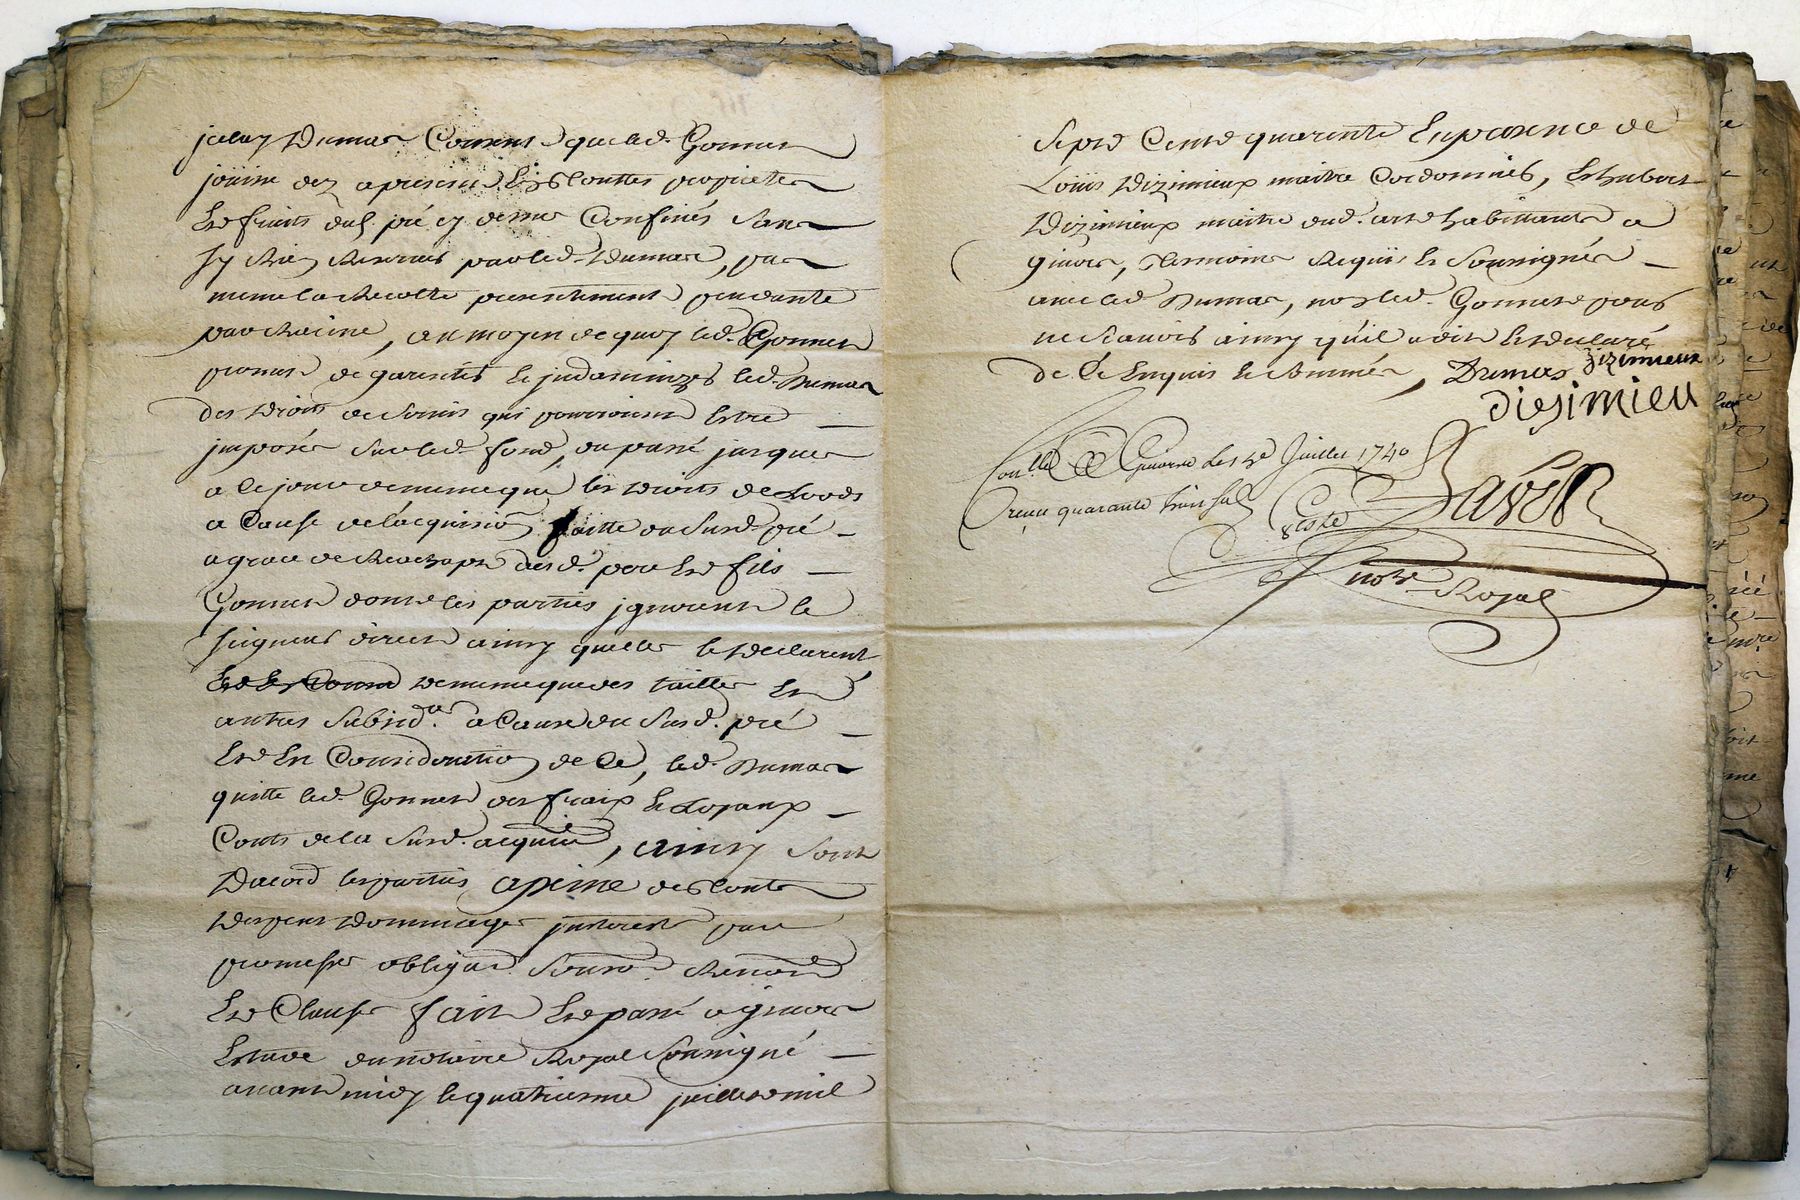 jceluy Dumas Consent que led. Gonnet
jouisse dez a present En touttes proprietes
Et fruits dud. pré cy dessus Confinés Sans
sy Rien Reserver par led. Dumas, pas
meme la Recolte presentement pendante
par Racine, au moyen de quoy led. Gonnet
promet de garentir Et jndamnizer led. Dumas
des Droits de Servis qui pourroient Estre
jmposés Sur led. fond, du passé jusques
a Ce jour de meme que les Droits de Loods
a Cause de l'acquision faitte du Susd. pré
a grace de Reachapt dud. pere Et fils
Gonnet dont les parties jgnorent le
seigneur direct ainsy quelles le Declarent
de meme que des tailles Et
autres Subsides a Cause du Susd. pré
Et En Consideration de Ce, led. Dumas
quitte led. Gonnet des fraix Et Loyaux
Couts de la Susd. acquion, ainsy Sont
Dacord les parties apeine de touts
Depens Dommages jnterest par
promesses obligaon Soumon Renonaon
Et Clauses fait Et passé a givors
Estude du notaire Royal Soussigné
avant midy le quatrieme juillet mil
Sept Cent quarente En presence de
Louis Dizimieux maitre Cordonnier, Et hubert
Dizimieux maitre dud. art habittants a
givors, Temoins Requis Et Soussignés
avec led. Dumas, non led. Gonnet pour
ne Scavoir ainsy qu'il a dit Et declaré
de Ce Enquis Et Sommés, Dumas Dizimieux
diesimieu
Conllé a Givors Le 12e Juillet 1740
Receu quarante huit sols
Baver
notre Royal